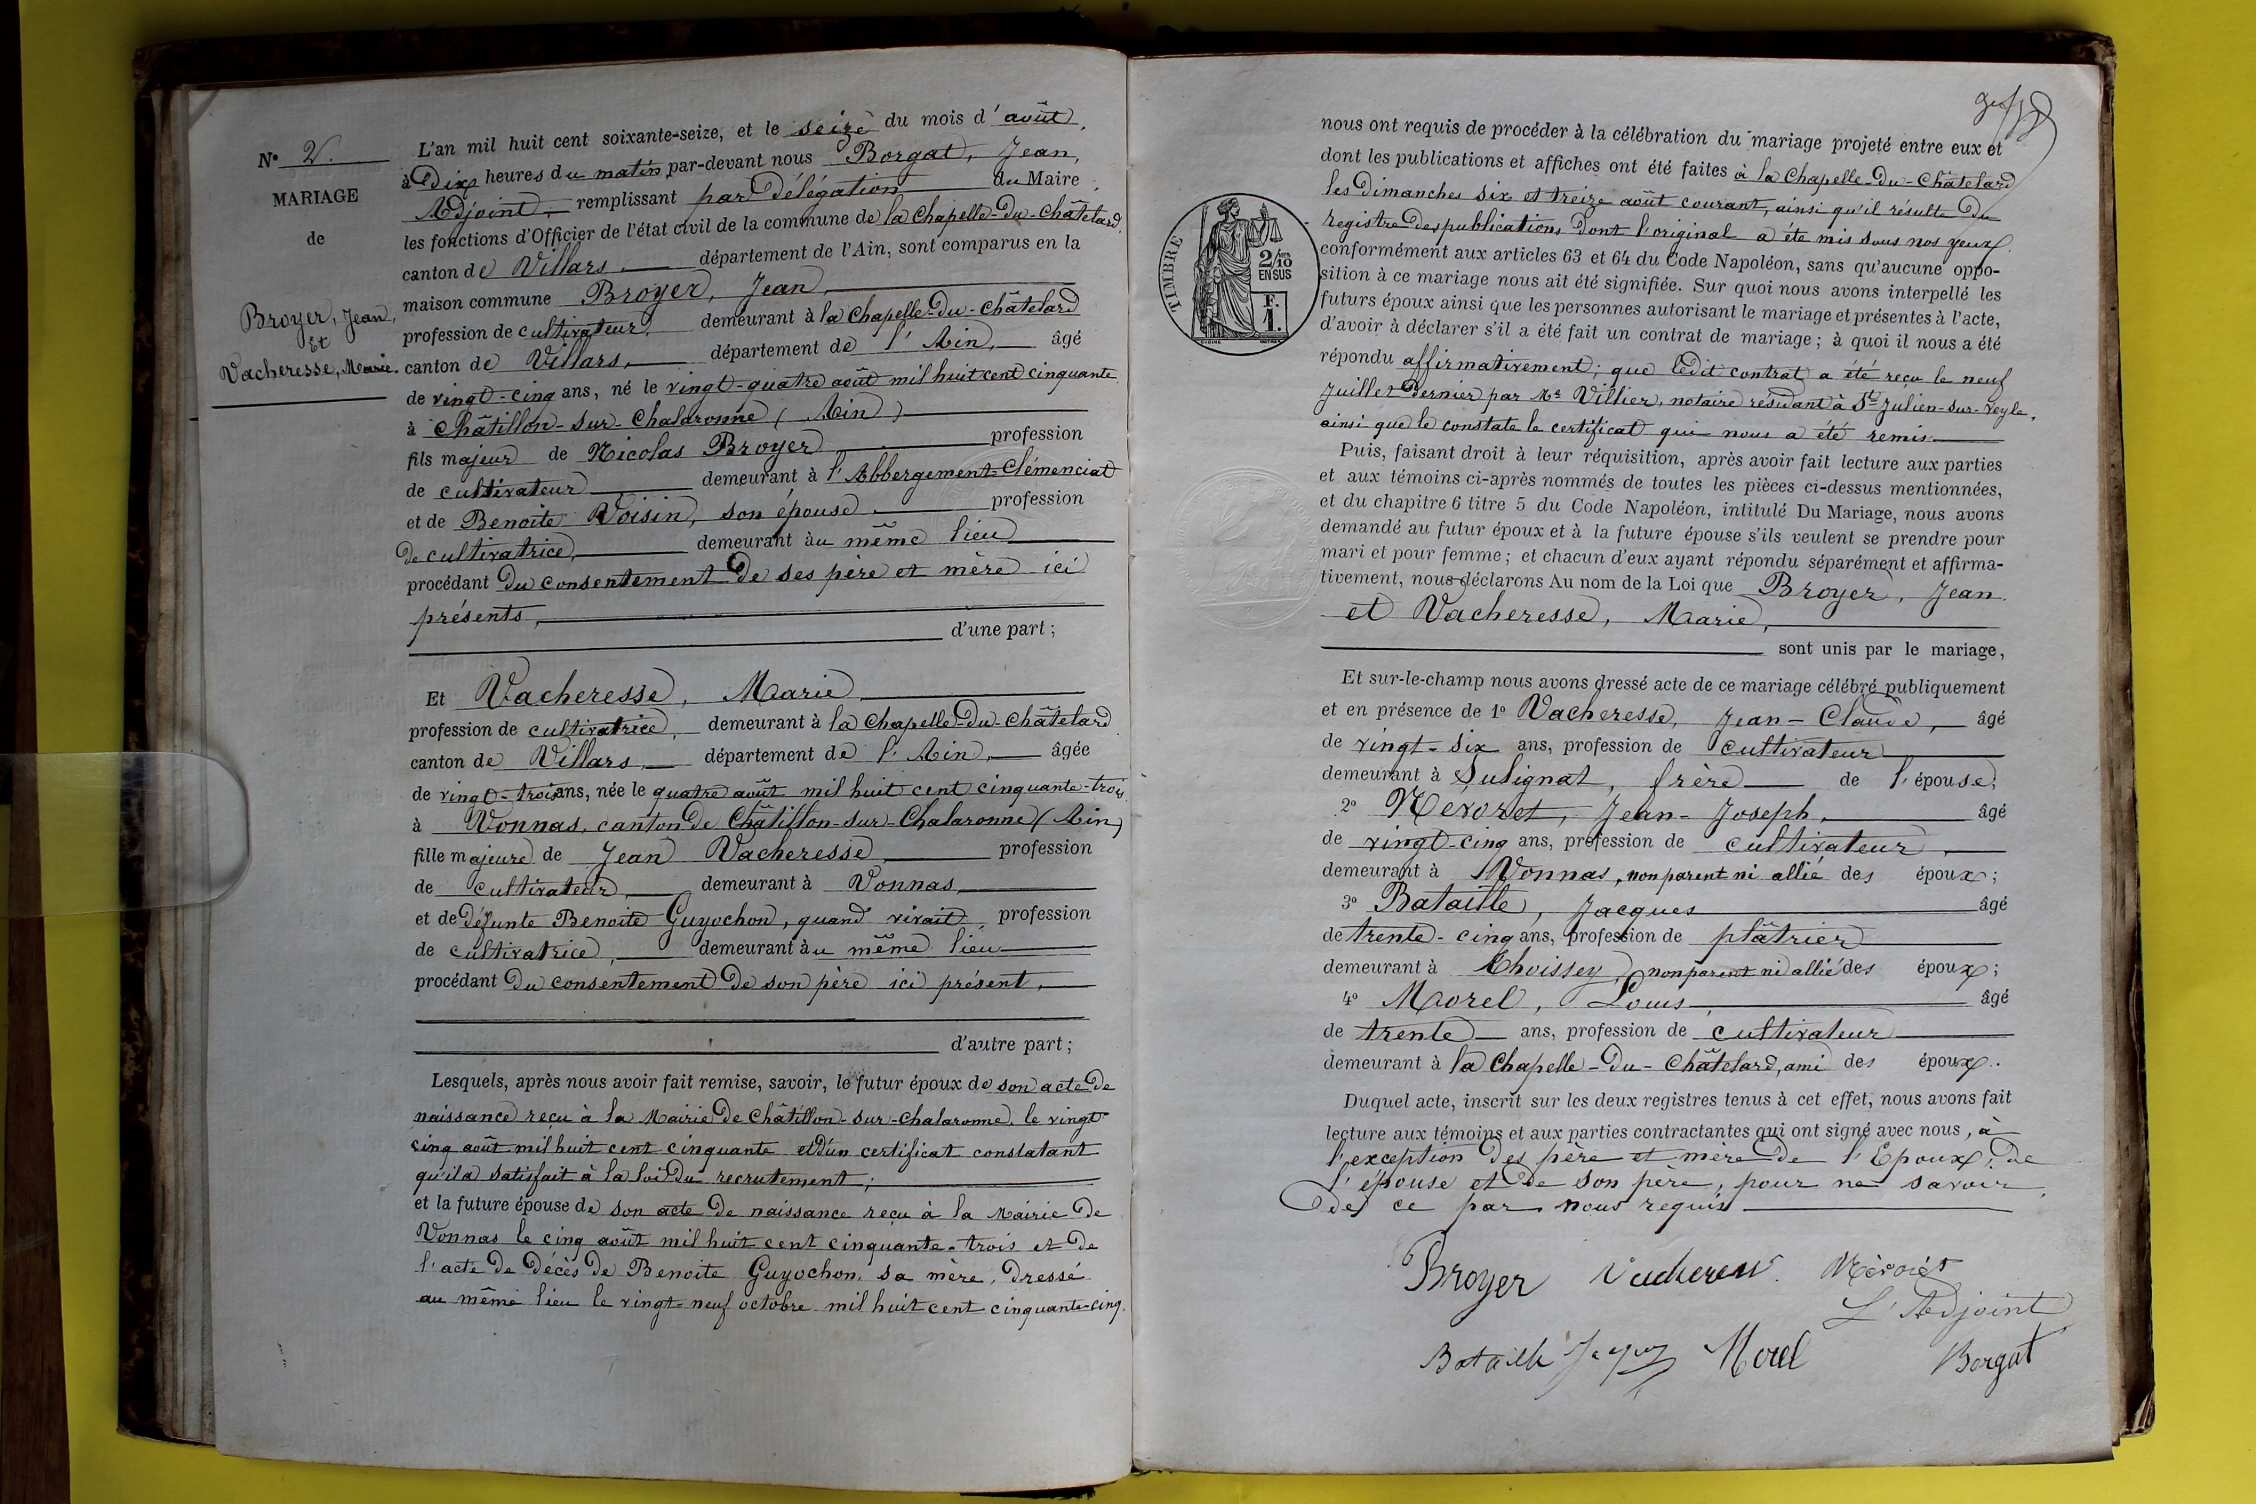 N° 2.
MARIAGE
de
Broyer, Jean,
Et
Vacheresse, Marie.
L'an mil huit cent soixante-seize, et le seize du mois d'août,
à Dix heures du matin, par-devant nous Borgat, Jean,
Adjoint, remplissant par Délégation du Maire
les fonctions d'Officier de l'état civil de la commune de la Chapelle-Du-Châtelard,
canton de Villars département de l'Ain, sont comparus en la
maison commune Broyer, Jean,
profession de cultivateur, demeurant à la Chapelle-Du-Châtelard
canton de Villars, département de l'Ain, âgé
de vingt-cinq ans, né le vingt-quatre août mil huit cent cinquante
à Châtillon-sur-Chalaronne (Ain)
fils majeur de Nicolas Broyer profession
de cultivateur demeurant à l'Abbergement-Clémenciat
et de Benoite Voisin, son épouse profession
De cultivatrice, demeurant au même lieu
procédant du consentement De ses père et mère ici
présents,
d'une part;
Et Vacheresse, Marie
profession de cultivatrice, demeurant à la Chapelle-Du-Châtelard
canton de Villars, département de l'Ain, âgée
de vingt-trois ans, née le quatre août mil huit cent cinquante-trois
à Vonnas, canton De Châtillon-sur-Chalaronne (Ain)
fille majeure de Jean Vacheresse profession
de cultivateur, demeurant à Vonnas
et de Défunte Benoite Guyochon, quand vivait, profession
de cultivatrice, demeurant au même lieu
procédant Du consentement De son père ici présent,
d'autre part;
Lesquels, après nous avoir fait remise, savoir, le futur époux de son acte De
naissance reçu à la Mairie De Châtillon-sur-Chalaronne, le vingt
cinq août mil huit cent cinquante et D'un certificat constatant
qu'il a satisfait à la loi Du recrutement;
et la future épouse de son acte De naissance reçu à la Mairie De
Vonnas le cinq août mil huit cent cinquante-trois et De
l'acte De Décès De Benoite Guyochon, sa mère, Dressé
au même lieu le vingt-neuf octobre mil huit cent cinquante-cinq.
nous ont requis de procéder à la célébration du mariage projeté entre eux et
dont les publications et affiches ont été faites à la Chapelle-Du-Châtelard
les Dimanches six et treize août courant, ainsi qu'il résulte Du
registre Des publications Dont l'original a été mis sous nos yeux
conformément aux articles 63 et 64 du Code Napoléon, sans qu'aucune oppo-
sition à ce mariage nous ait été signifiée. Sur quoi nous avons interpellé les
futurs époux ainsi que les personnes autorisant le mariage et présentes à l'acte,
d'avoir à déclarer s'il a été fait un contrat de mariage; à quoi il nous a été
répondu affirmativement; que ledit contrat a été reçu le neuf
Juillet Dernier par Me Villier, notaire résidant à St Julien-sur-Veyle,
ainsi que le constate le certificat qui nous a été remis
Puis, faisant droit à leur réquisition, après avoir fait lecture aux parties
et aux témoins ci-après nommés de toutes les pièces ci-dessus mentionnées,
et du chapitre 6 titre 5 du Code Napoléon, intitulé Du Mariage, nous avons
demandé au futur époux et à la future épouse s'ils veulent se prendre pour
mari et pour femme; et chacun d'eux ayant répondu séparément et affirma-
tivement, nous déclarons Au nom de la Loi que Broyer, Jean
et Vacheresse, Marie,
sont unis par le mariage,
Et sur-le-champ nous avons dressé acte de ce mariage célébré publiquement
et en présence de 1° Vacheresse, Jean-Claude, âgé
de vingt-six ans, profession de cultivateur
demeurant à Sulignat, frère de l'épouse;
2° Nevoret, Jean-Joseph, âgé
de vingt-cinq ans, profession de cultivateur,
demeurant à Vonnas, non parent ni allié des époux;
3° Bataille, Jacques âgé
de trente-cinq ans, profession de plâtrier
demeurant à Thoissey, non parent ni allié des époux;
4° Morel, Louis, âgé
de trente ans, profession de cultivateur
demeurant à la Chapelle-Du-Châtelard, ami des époux.
Duquel acte, inscrit sur les deux registres tenus à cet effet, nous avons fait
lecture aux témoins et aux parties contractantes qui ont signé avec nous, à
l'exception Des père et mère De l'Epoux, De
l'épouse et De son père, pour ne savoir,
De ce par nous requis
Broyer Vacheresse
L'Adjoint
Bataille Jacques Morel Borgat
TIMBRE
2/10 EN SUS
F. 1.